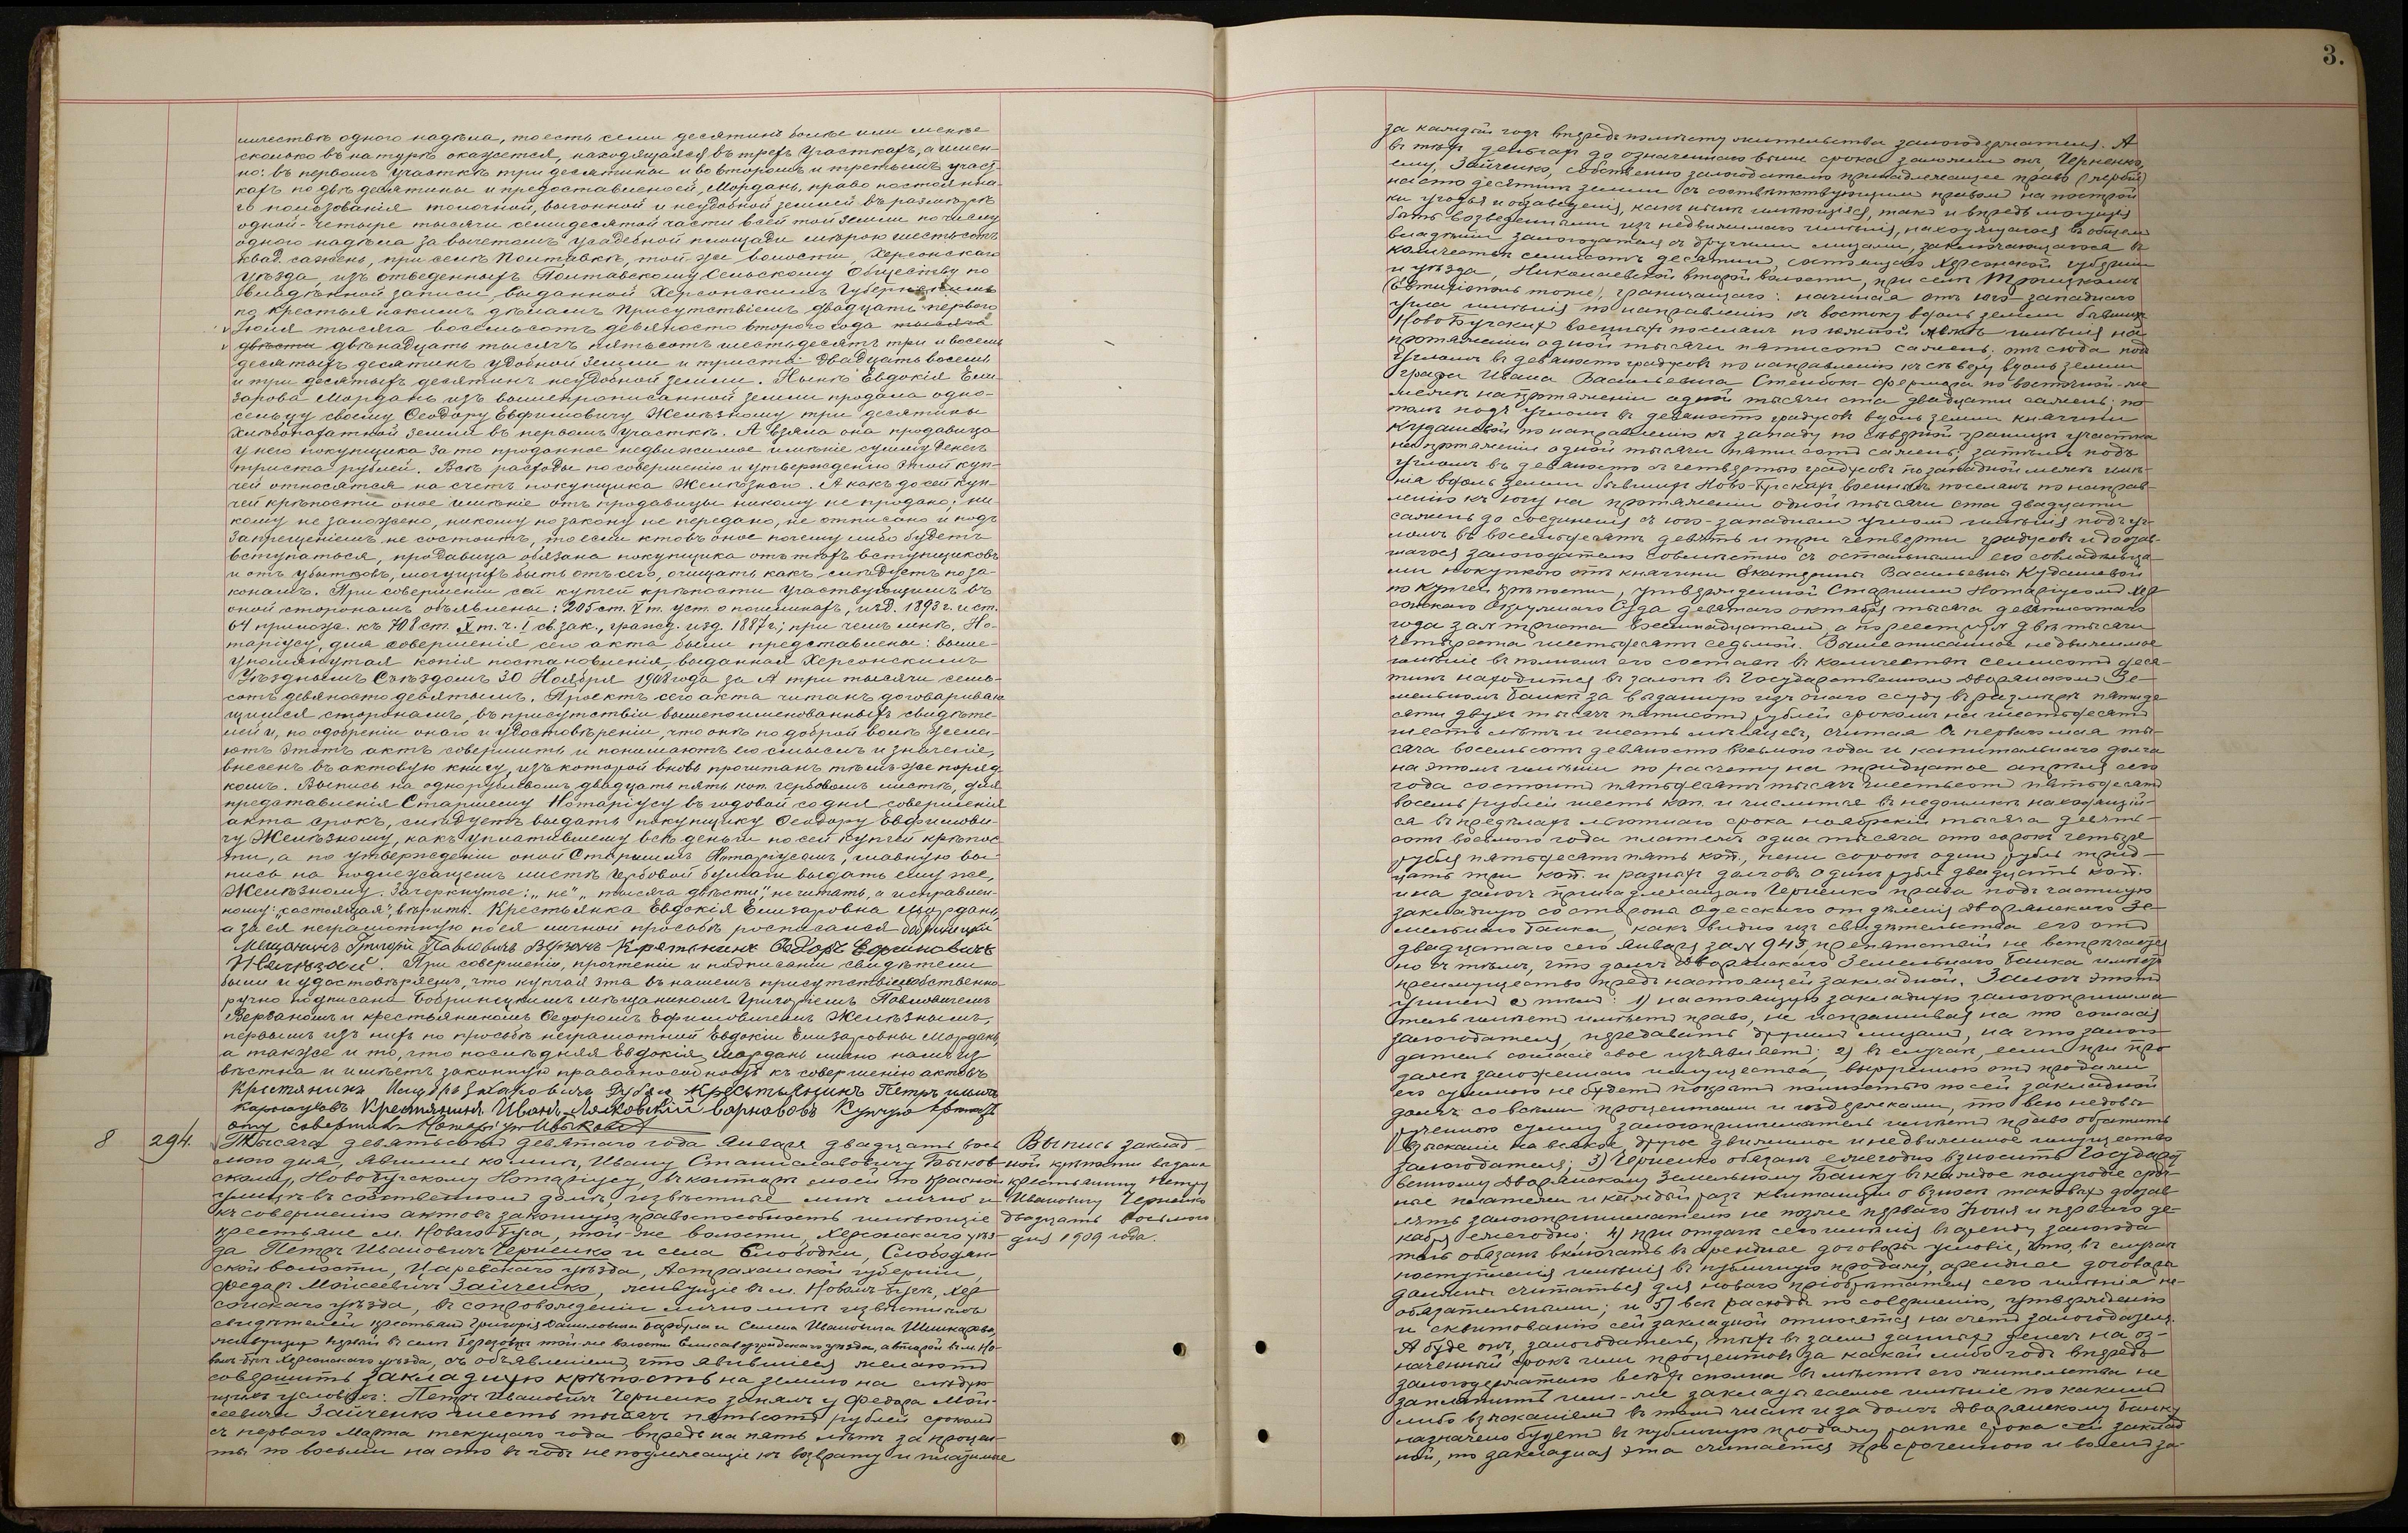 3.
личествѣ одного надѣла, то есть семи десятинъ болѣе или менѣе
сколько въ натурѣ окажется, находящаяся въ трехъ участкахъ, а имен-
но: въ первомъ участкѣ три десятины и во второмъ и третьемъ участ-
кахъ по двѣ десятины и предоставленной, Мордань, право постоянна-
го пользованія толочной, выгонной и неудобной землей въ размѣрѣ
одной-четыре тысячи семидесятой части всей той земли по числу
одного надѣла за вычетомъ усадебной площади мѣрою шестьсотъ
квад. сажень, при селѣ Полтавкѣ, той же волости, Херсонскаго
уѣзда, изъ отведенныхъ Полтавскому Сельскому Обществу по
владѣнной записи, выданной Херсонскимъ Губернскимъ
по крестьянскимъ дѣламъ Присутствіемъ двадцать перваго
Іюля тысяча восемьсотъ девяносто второго года тысяча
двѣсти двѣнадцать тысячъ пятьсотъ шестьдесятъ три и восемь
десятыхъ десятинъ удобной земли и триста двадцать восемь
и три десятыхъ десятинъ неудобной земли. Нынѣ Евдокія Ели-
зарова Мордань изъ вышепрописанной земли продала одно-
сельцу своему Ѳеодору Евфимовичу Желѣзному три десятины
хлѣбопахатной земли въ первомъ участкѣ. А взяла она продавица
у него покупщика за то проданное недвижимое имѣніе сумму денегъ
триста рублей. Всѣ расходы по совершенію и утвержденію этой куп-
чей относятся на счетъ покупщика Желѣзнаго. А какъ до сей куп-
чей крѣпости оное имѣніе отъ продавицы никому не продано, ни-
кому не заложено, никому по закону не передано, не отписано и подъ
запрещеніемъ не состоитъ, то если кто въ оное почему либо будетъ
вступаться, продавица обязана покупщика отъ тѣхъ вступщиковъ
и отъ убытковъ, могущихъ быть отъ сего, очищать какъ слѣдуетъ по за-
конамъ. При совершеніи сей купчей крѣпости участвующимъ въ
оной сторонамъ объявлены: 205 ст. V т. уст. о пошлинахъ, изд. 1893 г. и ст.
64 прилож. къ 708 ст. X т. ч. I св. зак., гражд. изд. 1887 г.; при чемъ мнѣ, Но-
таріусу, для совершенія сего акта были представлены: выше-
упомянутая копія постановленія, выданная Херсонскимъ
Уѣзднымъ Съѣздомъ 30 Ноября 1908 года за № три тысячи семь-
сотъ девяносто девятымъ. Проектъ сего акта читанъ договариваю
щимся сторонамъ, въ присутствіи вышепоименованныхъ свидѣте-
лей и, по одобреніи онаго и удостовѣреніи, что онѣ по доброй волѣ жела-
ютъ этотъ актъ совершить и понимаютъ его смыслъ и значеніе,
внесенъ въ актовую книгу, изъ которой вновь прочитанъ тѣмъ-же поряд
комъ. Выпись на однорублевомъ двадцать пять коп. гербовомъ листѣ, для
представленія Старшему Нотаріусу въ годовой со дня совершенія
акта срокъ, слѣдуетъ выдать покупщику Ѳеодору Евфимови-
чу Желѣзному, какъ уплатившему всѣ деньги по сей купчей крѣпос
ти, а по утвержденіи оной Старшимъ Нотаріусомъ, главную вы-
пись на подлежащемъ листѣ гербовой бумаги выдать ему же,
Желѣзному. Зачеркнутое: „не“, „тысяча двѣсти“, не читать, а исправлен-
ному: „состоящая“, вѣрить. Крестьянка Евдокія Елизаровна Мордань,
а за ея неграмотную по ея личной просьбѣ росписался бобринецкій
Мещанинъ Григорій Павловичъ Крестьянинъ Ѳедоръ Ефимовичъ
Желѣзный. При совершеніи, прочтеніи и подписаніи свидѣтели
были и удостовѣряемъ, что купчая эта въ нашемъ присутствіи собственно-
ручно подписана Бобринецкимъ мѣщаниномъ Григоріемъ Павловичемъ
и крестьяниномъ Ѳедоромъ Ефимовичемъ Желѣзнымъ,
первымъ изъ нихъ по просьбѣ неграмотной Евдокіи Елизаровны Мордань,
а также и то, что послѣдняя Евдокія Мордань лично намъ из
вѣстна и имѣетъ законную правоспособность къ совершенію актовъ.
Крестянинъ Захаровичъ Крестьянинъ Петръ
Крестянинъ Иванъ Купчую крѣпость
эту совершилъ Нотаріусъ Быковскій
8 294. Тысяча девятьсотъ девятаго года Января двадцать вось Выпись заклад
мого дня, явились ко мнѣ, Ивану Станиславовичу Быков ной крѣпости выдана
скому, Новобугскому Нотаріусу, въ контору мою по Красной крестьянину Петру
улицѣ въ собственномъ домѣ, извѣстные мнѣ лично и Ивановичу Черненко
къ совершенію актовъ законную правоспособность имѣющіе двадцать восьмого
крестьяне м. Новаго Буга, той-же волости, Херсонскаго уѣз- дня 1909 года.
да Петръ Ивановичъ Черненко и села Слободки, Слободан-
ской волости, Царевскаго уѣзда, Астраханской губерніи,
Федоръ Моисеевичъ Зайченко, живущіе въ м. Новомъ-Бугѣ, Хер
сонскаго уѣзда, въ сопровожденіи лично мнѣ извѣстныхъ
свидѣтелей крестьянъ Григорія Даниловича и Семена Ивановича Шинкарева,
живущихъ первый въ селѣ той-же волости Елисаветградскаго уѣзда, а второй въ м. Но-
вомъ-Бугѣ Херсонскаго уѣзда, съ объявленіемъ, что явившіеся желаютъ
совершить закладную крѣпость на землю на слѣдую-
щихъ условіяхъ: Петръ Ивановичъ Черненко занялъ у Федора Мои-
сеевича Зайченко шесть тысячъ пятьсотъ рублей срокомъ
съ перваго Марта текущаго года впредь на пять лѣтъ за процен-
ты по восьми на сто въ годъ не подлежащіе къ возврату и платимые
за каждый годъ впередъ по мѣсту жительства залогодержателя. А
въ тѣхъ деньгахъ до означеннаго выше срока заложилъ онъ Черненко,
ему, Зайченко, собственно залогодателю принадлежащее право (первой)
на сто десятинъ земли съ соотвѣтствующимъ правомъ на построй
ки угодья и обзаведенія, какъ нынѣ имѣющіяся, такъ и впредь могущія
быть возведенными изъ недвижимаго имѣнія, находящагося въ общемъ
владѣніи залогодателя съ другими лицами, заключающагося въ
количествѣ семисотъ десятинъ, состоящаго Херсонской губерніи
и уѣзда, Николаевской второй волости, при селѣ Троицкомъ
тоже), граничащаго: начиная отъ юго-западнаго
угла имѣнія по направленію къ востоку вдоль земли бывшихъ
Ново Бугскихъ военныхъ поселянъ по южной межѣ имѣнія на
протяженіи одной тысячи пятисотъ сажень; отсюда подъ
угломъ въ девяносто градусовъ по направленію къ сѣверу вдоль земли
графа Ивана Васильевича Стенбокъ-Фермора по восточной-же
межѣ на протяженіи одной тысячи ста двадцати сажень; по-
томъ подъ угломъ въ девяносто градусовъ вдоль земли княгини
Кудашевой по направленію къ западу по сѣверной границѣ участка
на протяженіи одной тысячи пяти сотъ сажень; затѣмъ подъ
угломъ въ девяносто съ четвертью градусовъ по западной межѣ имѣ-
нія вдоль земли бывшихъ Ново-Бугскихъ военныхъ поселянъ по направ-
ленію къ югу на протяженіи одной тысячи ста двадцати
сажень до соединенія съ юго-западнымъ угломъ имѣнія подъ уг-
ломъ въ восемьдесятъ девять и три четверти градусовъ и достав-
шагося залогодателю совмѣстно съ остальными его совладѣльца-
ми покупкою отъ княгини Екатерины Васильевны Кудашевой
по купчей крѣпости, утвержденной Старшимъ Нотаріусомъ Хер-
сонскаго Окружнаго Суда девятаго октября тысяча девятисотаго
года за № триста восемнадцатымъ, а по реестру № двѣ тысячи
четыреста шестьдесятъ седьмой. Вышеописанное недвижимое
имѣніе въ полномъ его составѣ въ количествѣ семисотъ деся-
тинъ находится въ залогѣ въ Государственномъ Дворянскомъ Зе-
мельномъ Банкѣ за выданную изъ онаго ссуду въ размѣрѣ пятиде
сяти двухъ тысячъ пятисотъ рублей срокомъ на шестьдесятъ
шесть лѣтъ и шесть мѣсяцевъ, считая съ перваго мая ты-
сяча восемьсотъ девяносто восьмого года и капитальнаго долга
на этомъ имѣніи по расчету на тридцатое апрѣля сего
года состоитъ пятьдесятъ тысячъ шестьсотъ пятьдесятъ
восемь рублей шесть коп. и числится въ недоимкѣ находящей-
ся въ предѣлахъ льготнаго срока ноябрскій тысяча девять-
сотъ восьмого года платежъ одна тысяча сто сорокъ четыре
рубля пятьдесятъ пять коп., пени сорокъ одинъ рубль трид-
цать три коп. и разныхъ долговъ одинъ рубль двадцать коп.
и на залогъ принадлежащаго Черненко права подъ частную
закладную со стороны Одесскаго отдѣленія Дворянскаго Зе-
мельнаго Банка, какъ видно изъ свидѣтельства его отъ
двадцатаго сего Января за № 943 препятствій не встрѣчается
но съ тѣмъ, что долгъ Дворянскаго Земельнаго Банка имѣетъ
преимущество предъ настоящей закладной. Залогъ этотъ
учиненъ съ тѣмъ: 1) настоящую закладную залогоприниматель
тель имѣетъ имѣетъ право, не испрашивая на то согласія
залогодателя, передавать другимъ лицамъ, на что залого-
датель согласіе свое изъявляетъ; 2) въ случаѣ, если при про
дажѣ заложеннаго имущества, вырученною отъ продажи
его суммою не будетъ покрытъ полностью по сей закладной
долгъ со всѣми процентами и издержками, то всю недовы-
рученную сумму залогоприниматель имѣетъ право обратить
взысканіе на всякое другое движимое и недвижимое имущество
залогодателя; 3) Черненко обязанъ ежегодно взносить Государст
венному Дворянскому Земельному Банку въ каждое полугодіе сроч-
ные платежи и каждый разъ квитанціи о взносѣ таковыхъ достав
лять залогопринимателю не позже перваго Іюня и перваго де-
кабря ежегодно; 4) при отдачѣ сего имѣнія въ аренду залогода-
тель обязанъ включать въ арендные договоры условіе, что, въ случаѣ
поступленія имѣнія въ публичную продажу, арендные договоры
должны считаться для новаго пріобрѣтателя сего имѣнія не-
обязательными; и 5) всѣ расходы по совершенію, утвержденію
и сквитованію сей закладной относятся на счетъ залогодателя.
А буде онъ, залогодатель, тѣхъ въ заемъ данныхъ денегъ на оз-
наченный срокъ или процентовъ за какой либо годъ впередъ
залогодержателю всѣхъ сполна въ мѣстѣ его жительства не
заплатитъ или-же закладываемое имѣніе по какимъ
либо взысканіямъ въ томъ числѣ и за долгъ Дворянскому банку
назначено будетъ въ публичную продажу ранѣе срока сей заклад
ной, то закладная эта считается просроченною и воленъ за-